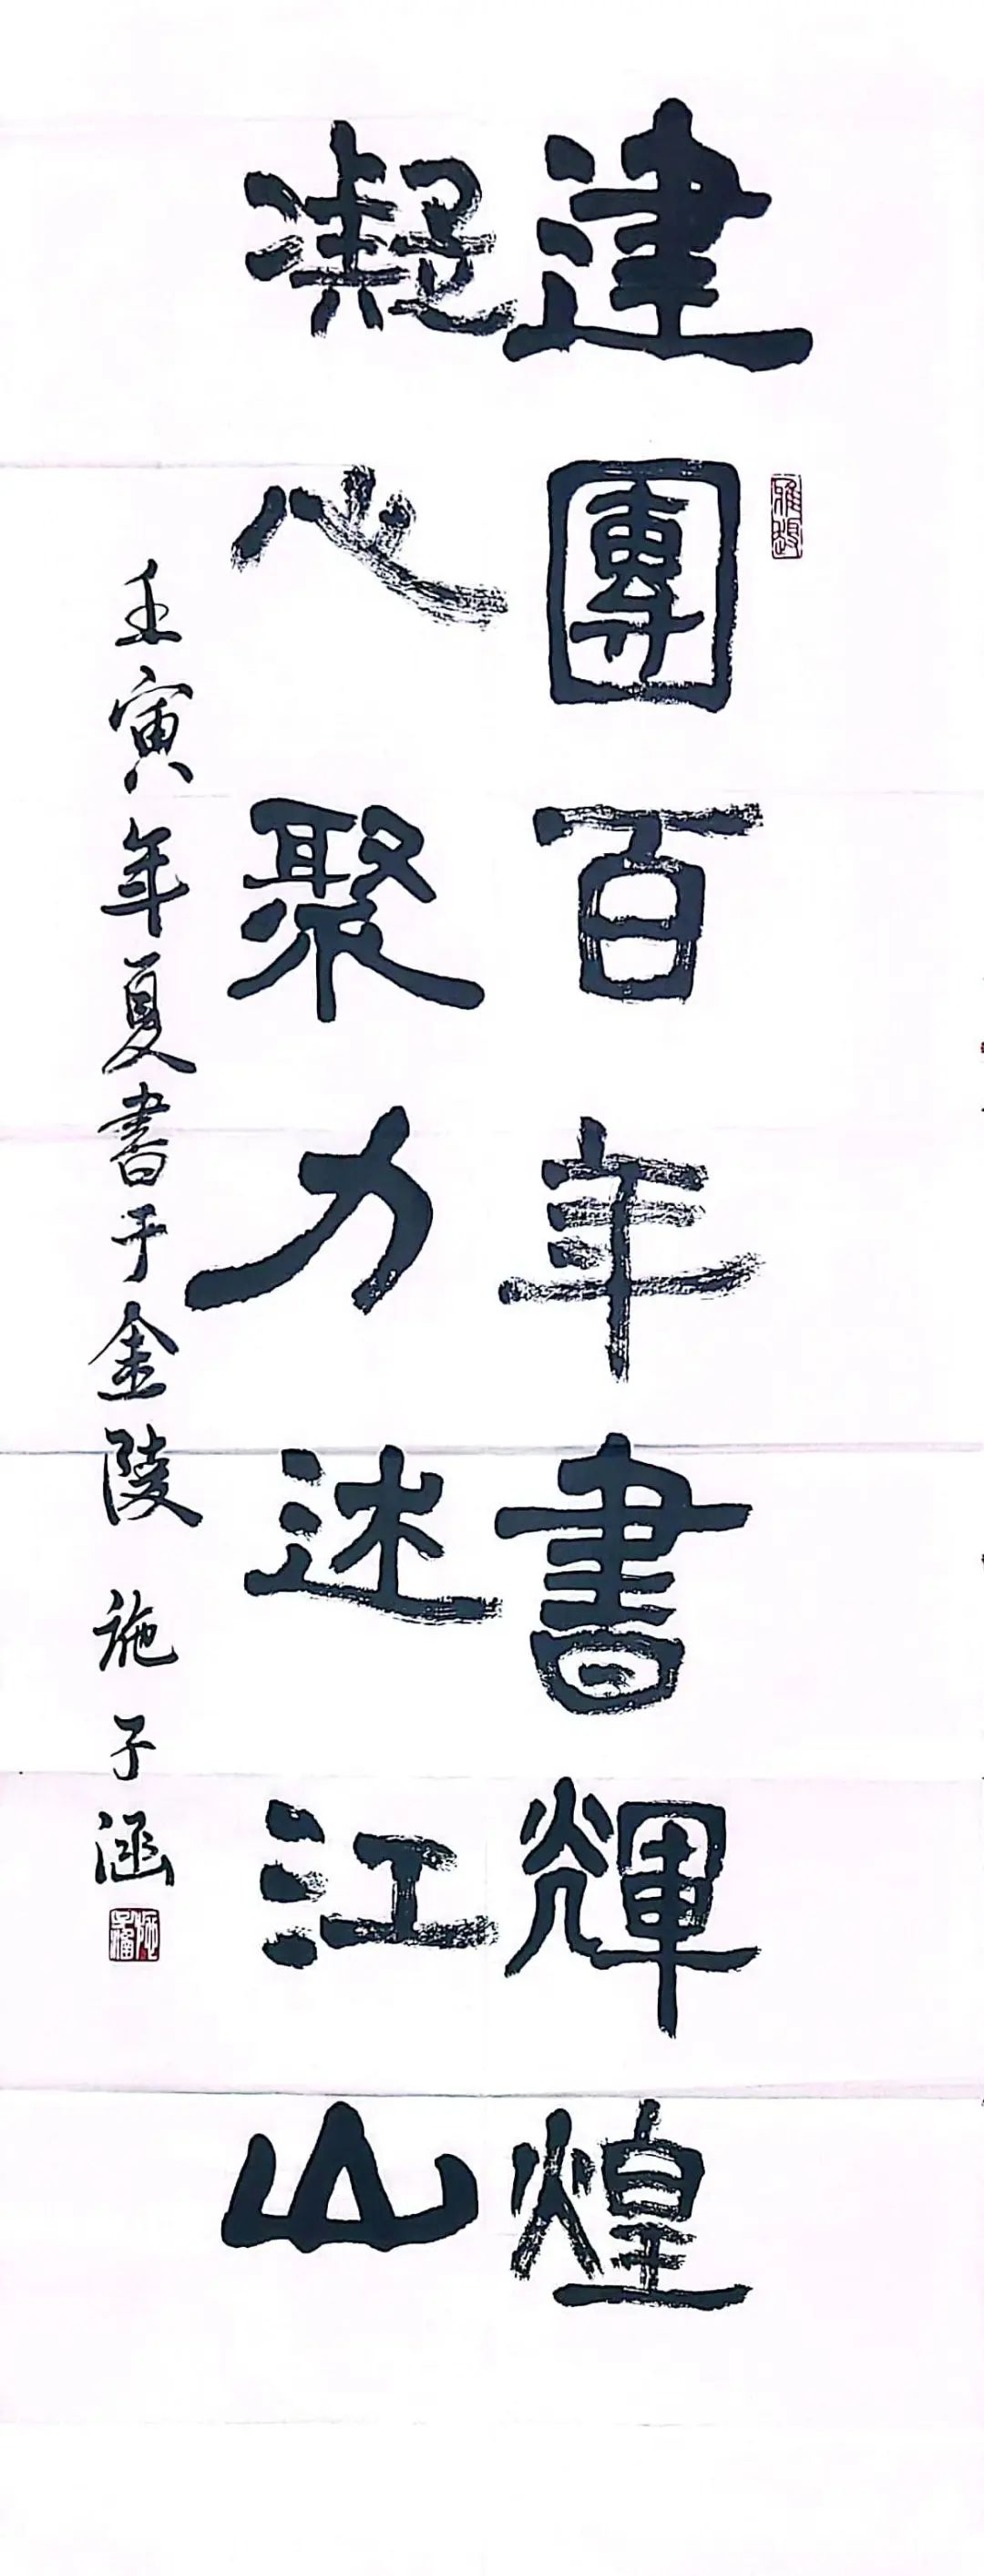 建團百年書輝煌
凝心聚力述江山
壬寅年夏書于金陵 施子涵